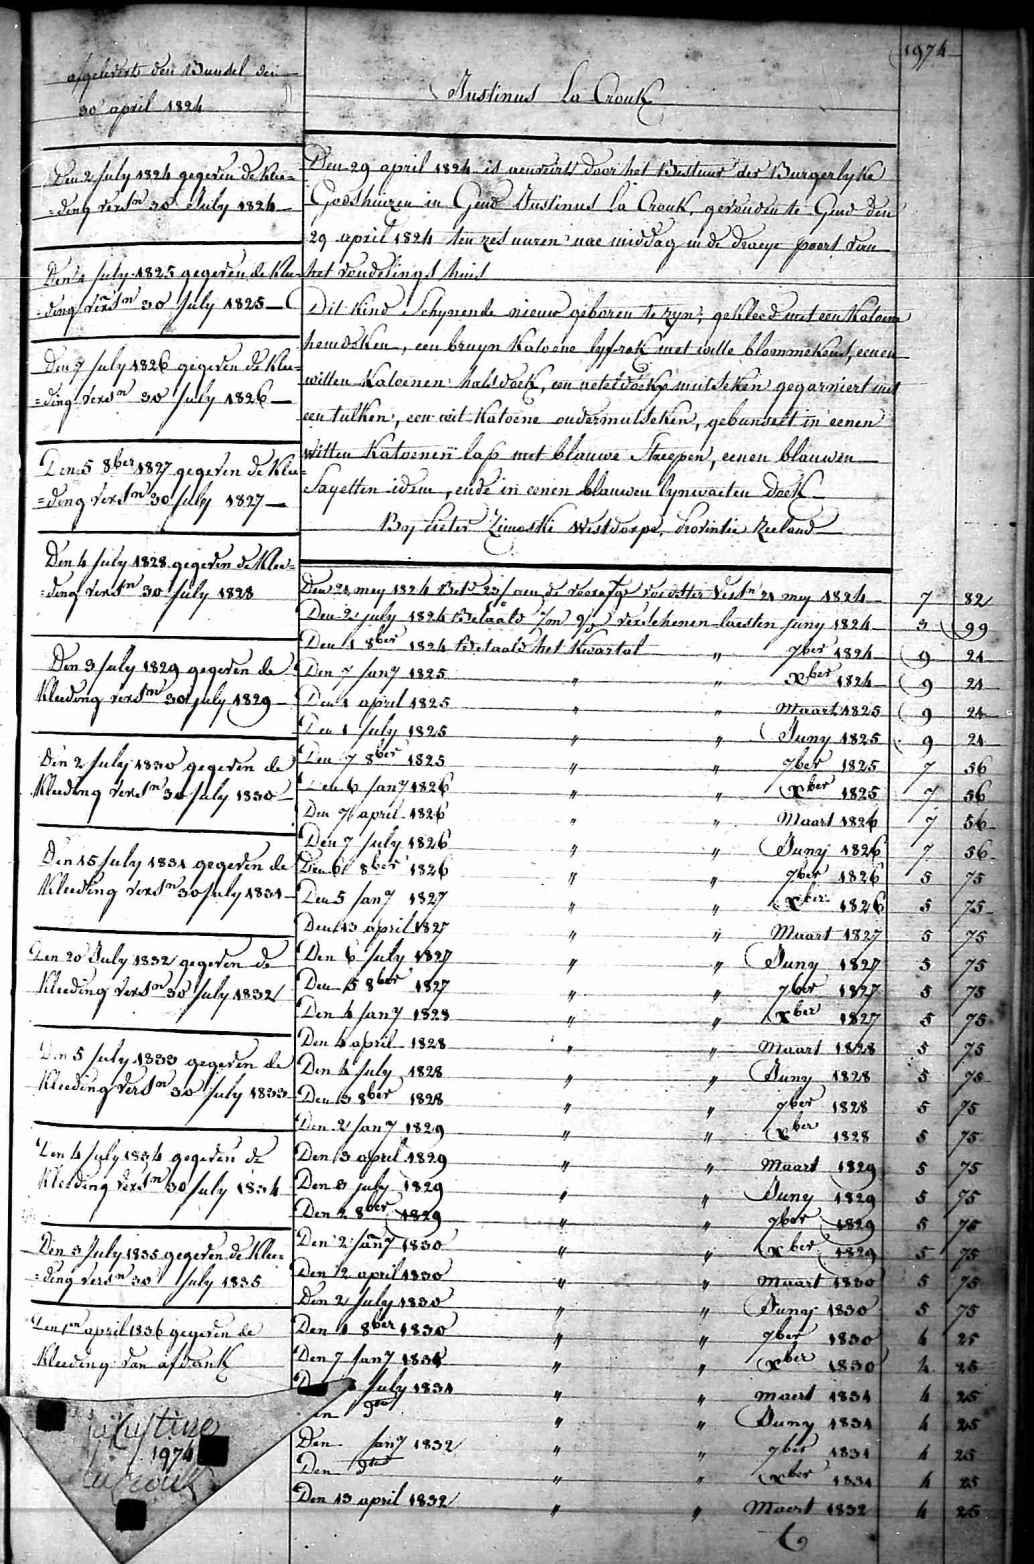 1974
afgelevert den Bundel den
30 april 1824
Justinus La Crouk
Den 2 July 1824 gegeven de klee=
=ding versn 30 July 1824
Den 4 July 1825 gegeven de klee
=ding versn 30 July 1825
Den 7 July 1826 gegeven de klee=
=ding versn 30 July 1826
Den 5 8ber 1827 gegeven de klee=
=ding versn 30 July 1827
Den 4 July 1828 gegeven de klee=
=ding versn 30 July 1828
Den 3 July 1829 gegeven de
kleeding versn 30 July 1829
Den 2 July 1830 gegeven de
kleeding versn 30 July 1830
Den 15 July 1831 gegeven de
kleeding versn 30 July 1831
Den 20 July 1832 gegeven de
kleeding versn 30 July 1832
Den 5 July 1833 gegeven de
kleeding versn 30 July 1833
Den 4 July 1834 gegeven de
kleeding versn 30 July 1834
Den 3 July 1835 gegeven de klee=
=ding versn 30 July 1835
Den 1en april 1836 gegeven de
kleeding van afdank
1974
Den 29 april 1824 is door het Bestuur der Burgerlyke
Godshuizen in Gend Justinus La Crouk, gevonden te Gend den
29 april 1824 ten zes uuren nae middag in de draeye poort van
het vondelings huis
Dit kind Schynende nieuw geboren te zyn, gekleed met een katoene
hemdeken, een bruyn katoene lyfrok met witte blommekens, eenen
witten katoenen halsdoek, een neteldoekx mutseken gegarniert met
een tulken, een wit katoene ondermutseken, gebunselt in eenen
witten katoenen lap met blauwe Streepen, eenen blauwen
Sayetten idem, ende in eenen blauwen lynwaeten doek
By Pieter Westdorpe, Provintie Zeeland
Den 21 mey 1824 21 mey 1824 7 82
Den 2 july 1824 Betaald verschenen laesten juny 1824 3 99
Den 1 8ber 1824 Betaald het kwartal " 7ber 1824 9 21
Den 7 Jany 1825 " " xber 1824 9 21
Den 1 april 1825 " " Maart 1825 9 21
Den 1 July 1825 " " Juny 1825 9 21
Den 7 8ber 1825 " " 7ber 1825 7 56
Den 6 Jany 1826 " " xber 1825 7 56
Den 7 april 1826 " " Maart 1826 7 56
Den 7 July 1826 " " Juny 1826 7 56
Den 6 8ber 1826 " " 7ber 1826 5 75
Den 5 Jany 1827 " " xber 1826 5 75
Den 13 april 1827 " " Maart 1827 5 75
Den 6 July 1827 " " Juny 1827 5 75
Den 5 8ber 1827 " " 7ber 1827 5 75
Den 4 Jany 1828 " " xber 1827 5 75
Den 4 april 1828 " " Maart 1828 5 75
Den 4 July 1828 " " Juny 1828 5 75
Den 3 8ber 1828 " " 7ber 1828 5 75
Den 2 Jany 1829 " " xber 1828 5 75
Den 3 april 1829 " " Maart 1829 5 75
Den 3 july 1829 " " Juny 1829 5 75
Den 2 8ber 1829 " " 7ber 1829 5 75
Den 2 Jany 1830 " " xber 1829 5 75
Den 2 april 1830 " " Maart 1830 5 75
Den 2 July 1830 " " Juny 1830 5 75
Den 1 8ber 1830 " " 7ber 1830 4 25
Den 7 Jany 1831 " " xber 1830 4 25
July 1831 " " Maert 1831 4 25
" " Juny 1831 4 25
Den Jany 1832 " " 7ber 1831 4 25
Den " " xber 1831 4 25
Den 13 april 1832 " " Maert 1832 4 25